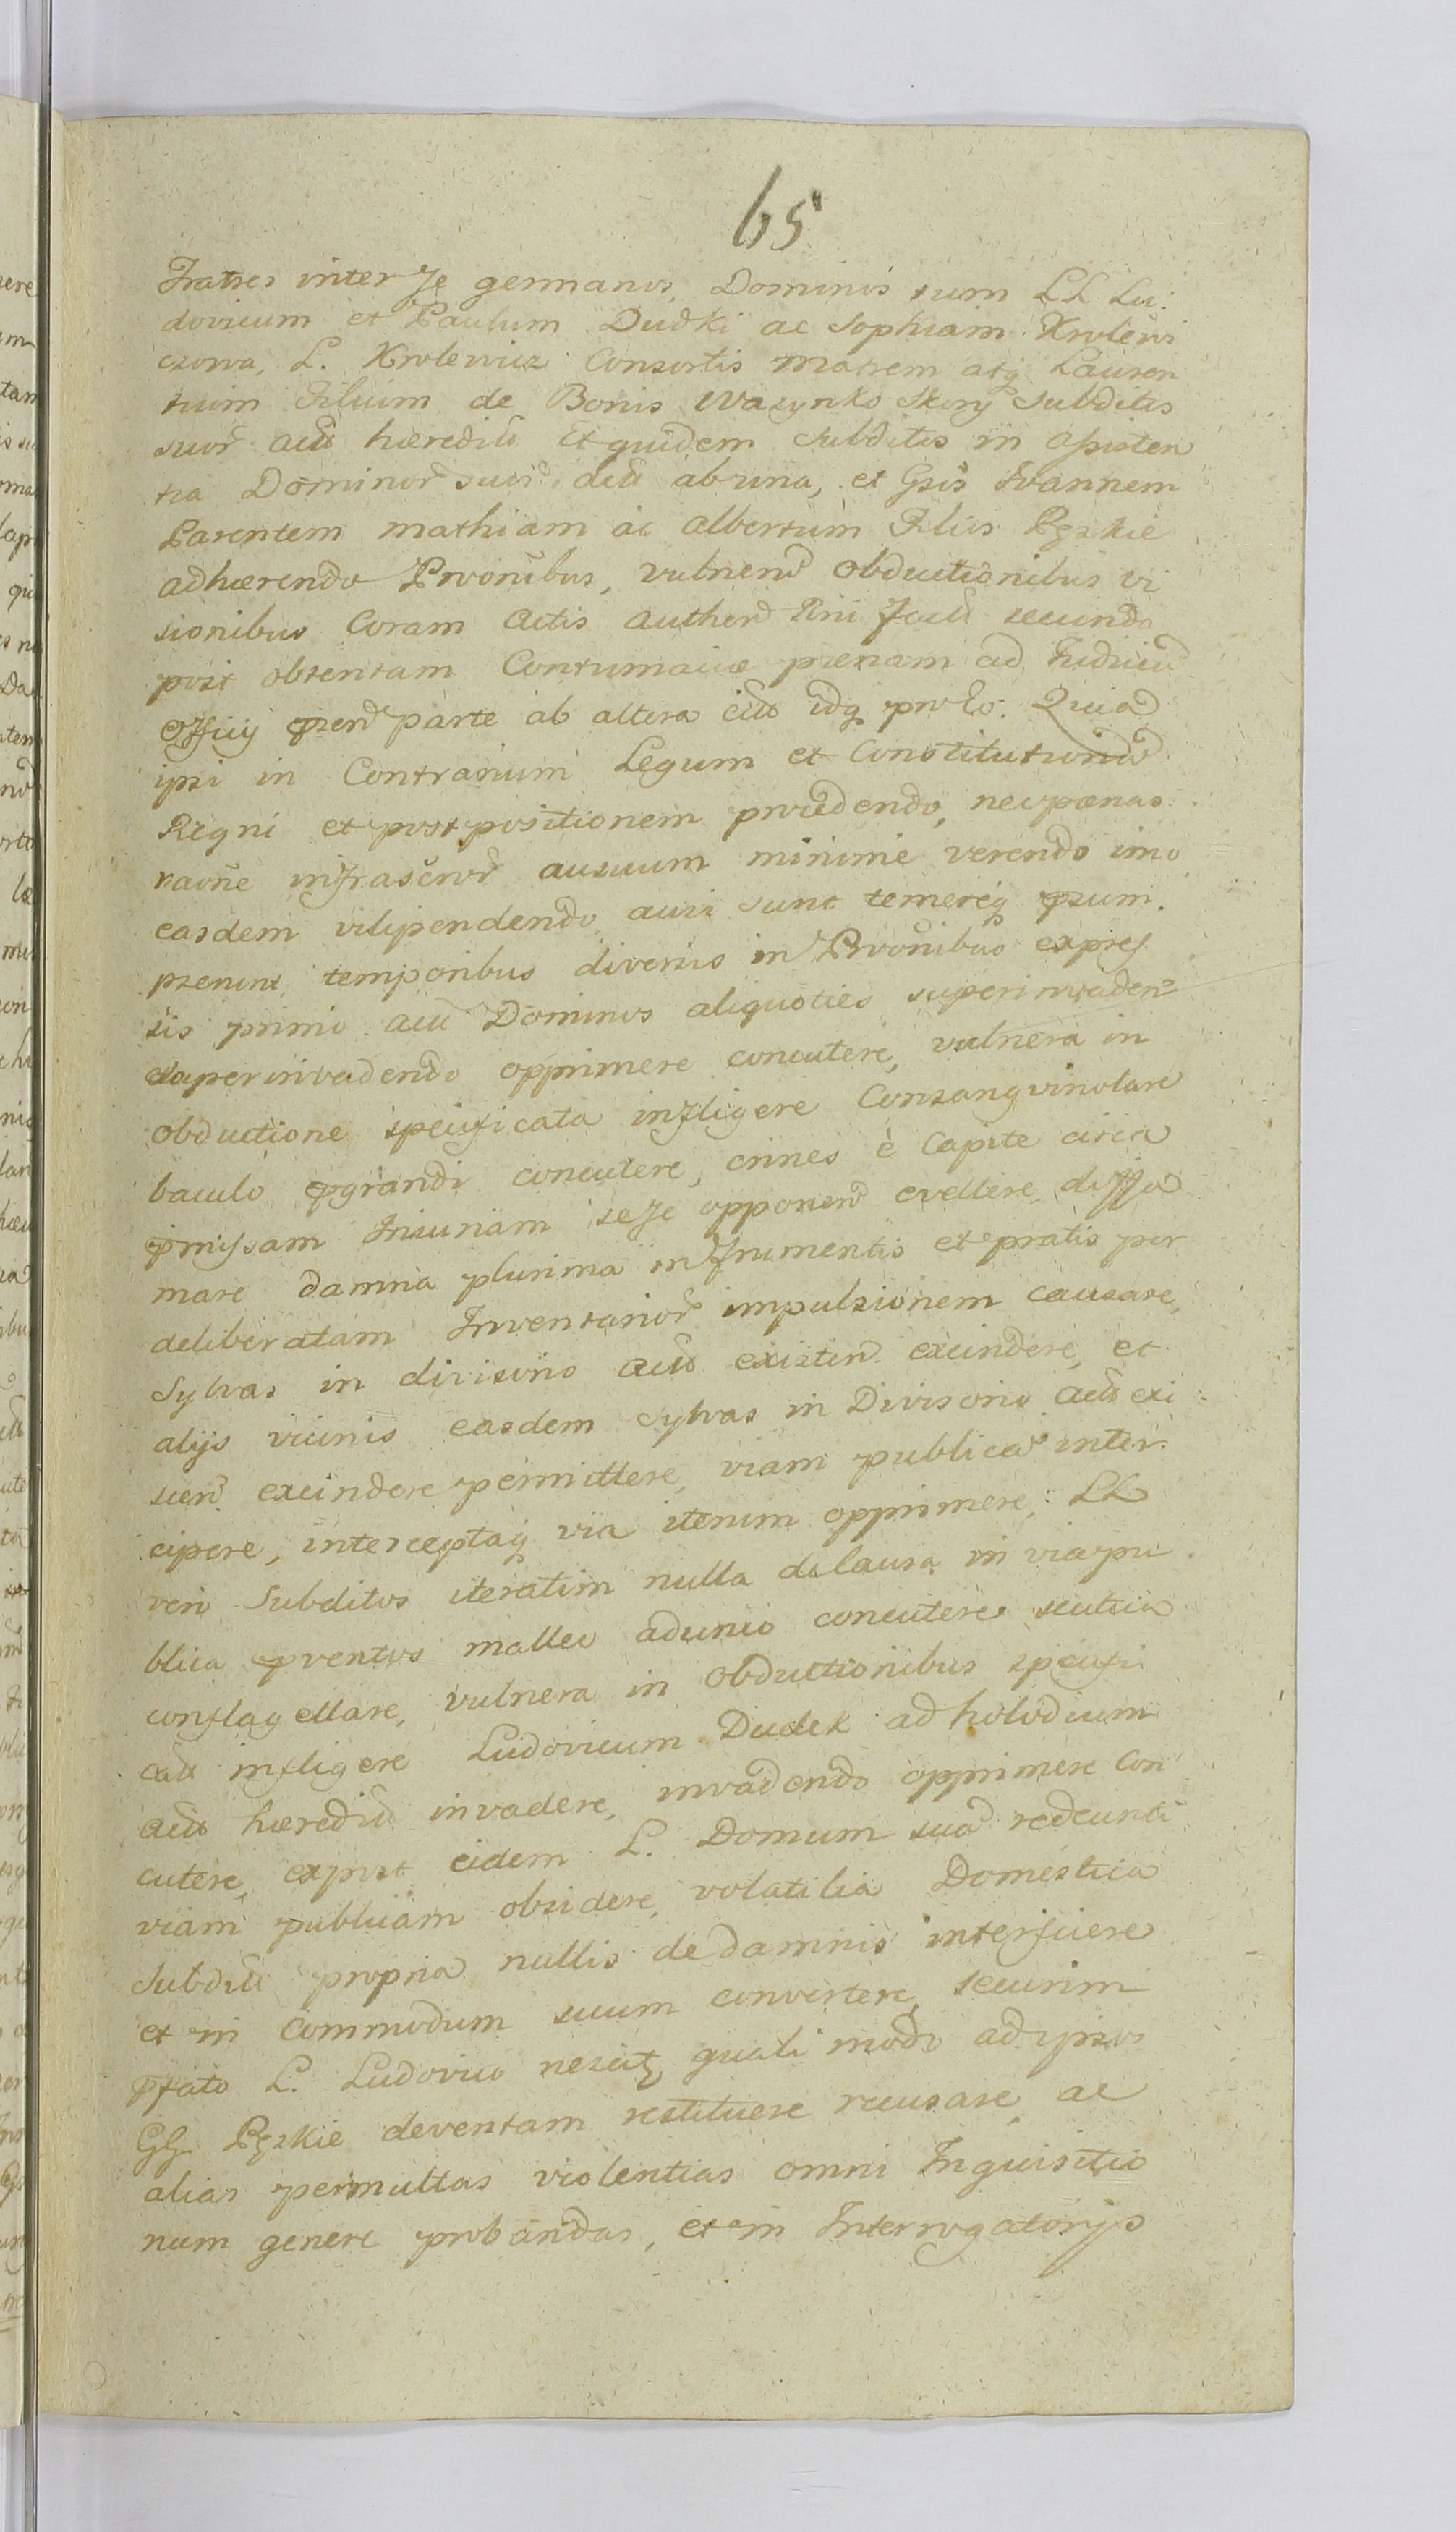 65
Fratres inter se germanos, Dominos tum LL Lu:
dovicum et Paulum Dudki ac Sophiam Krolewi
czowa, L. Krolewicz Consortis Matrem atq Lauren
tium Filium de Bonis Wazynko Skory Subditis
suor actu hæredits Et quidem Subditos in assisten
tia Dominor suor actu ab una, et Gsos Ioannem
Parentem Mathiam ac Albertum Filios Pęskie
adhærendo Provonibus, vulnerū Obductionibus vi
sionibus Coram Actis Authen Rni fact secundo
post obtentam Contumaciæ pænam ad Iudiciū
Officij pñen parte ab altera citt idq pro eo. Quia
ipsi in Contrarium Legum et Constitutionū
Regni et postpositionem procedendo, nec pænas
raõne infrascror ausuum minime verendo imo
easdem vilipendendo, ausi sunt temereq psum.
pserunt, temporibus diversis in Provonibus expres
sis primo actū Dominos aliquoties superinvaden
superinvadendo opprimere concutere, vulnera in
Obductione specificata infligere Consangvinolare
baculo pgrandi concutere, crines è Capite circa
pmissam Iniuriam sese opponen evellere, diffa
mare damna plurima in frumentis et pratis per
deliberatam Inventarior impulsionem causare,
Sylvas in divisorio actu existen excindere, et
alijs vicinis easdem Sylvas in Divisorio actu exi
sten excindere permittere, viam publicā inter
cipere, interceptaq via iterum opprimere, LL
vero Subditos iteratim nulla de causa in via pu
blica pventos malleo adunco concutere scutica
conflagellare, vulnera in Obductionibus specifi
catt infligere Ludovicum Dudek ad holodium
actu hæreditt invadere, invadendo opprimere con
cutere, expost eidem L. Domum suā redeunti
viam publicam obsidere, volatilia Domestica
Subditt propria nullis de damnis interficere
et in commodum suum convertere, securim
pfato L. Ludovico nescitq quali modo ad ipsos
GG. Pęskie deventam restituere recusare, ac
alias permultas violentias omni Inquisitio
num genere probandas, et in Interrogatorijs